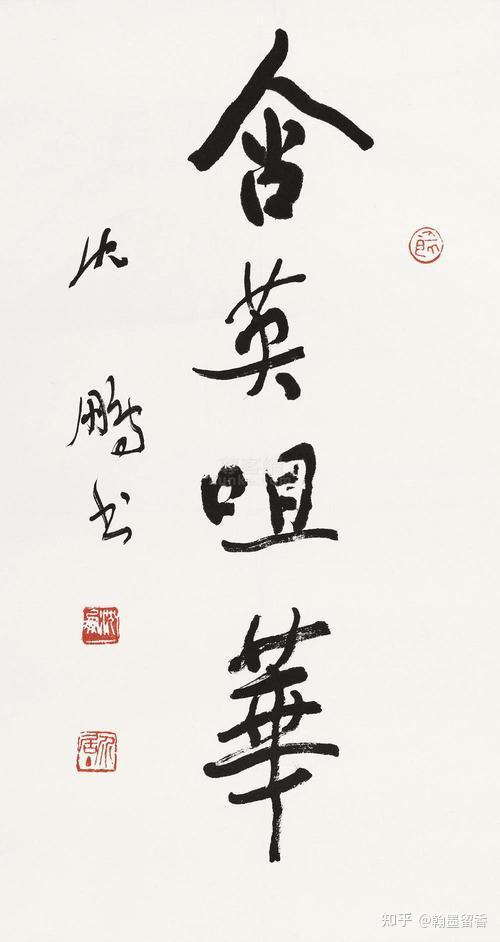 含英咀華
沈鹏书
知乎 @翰墨留香